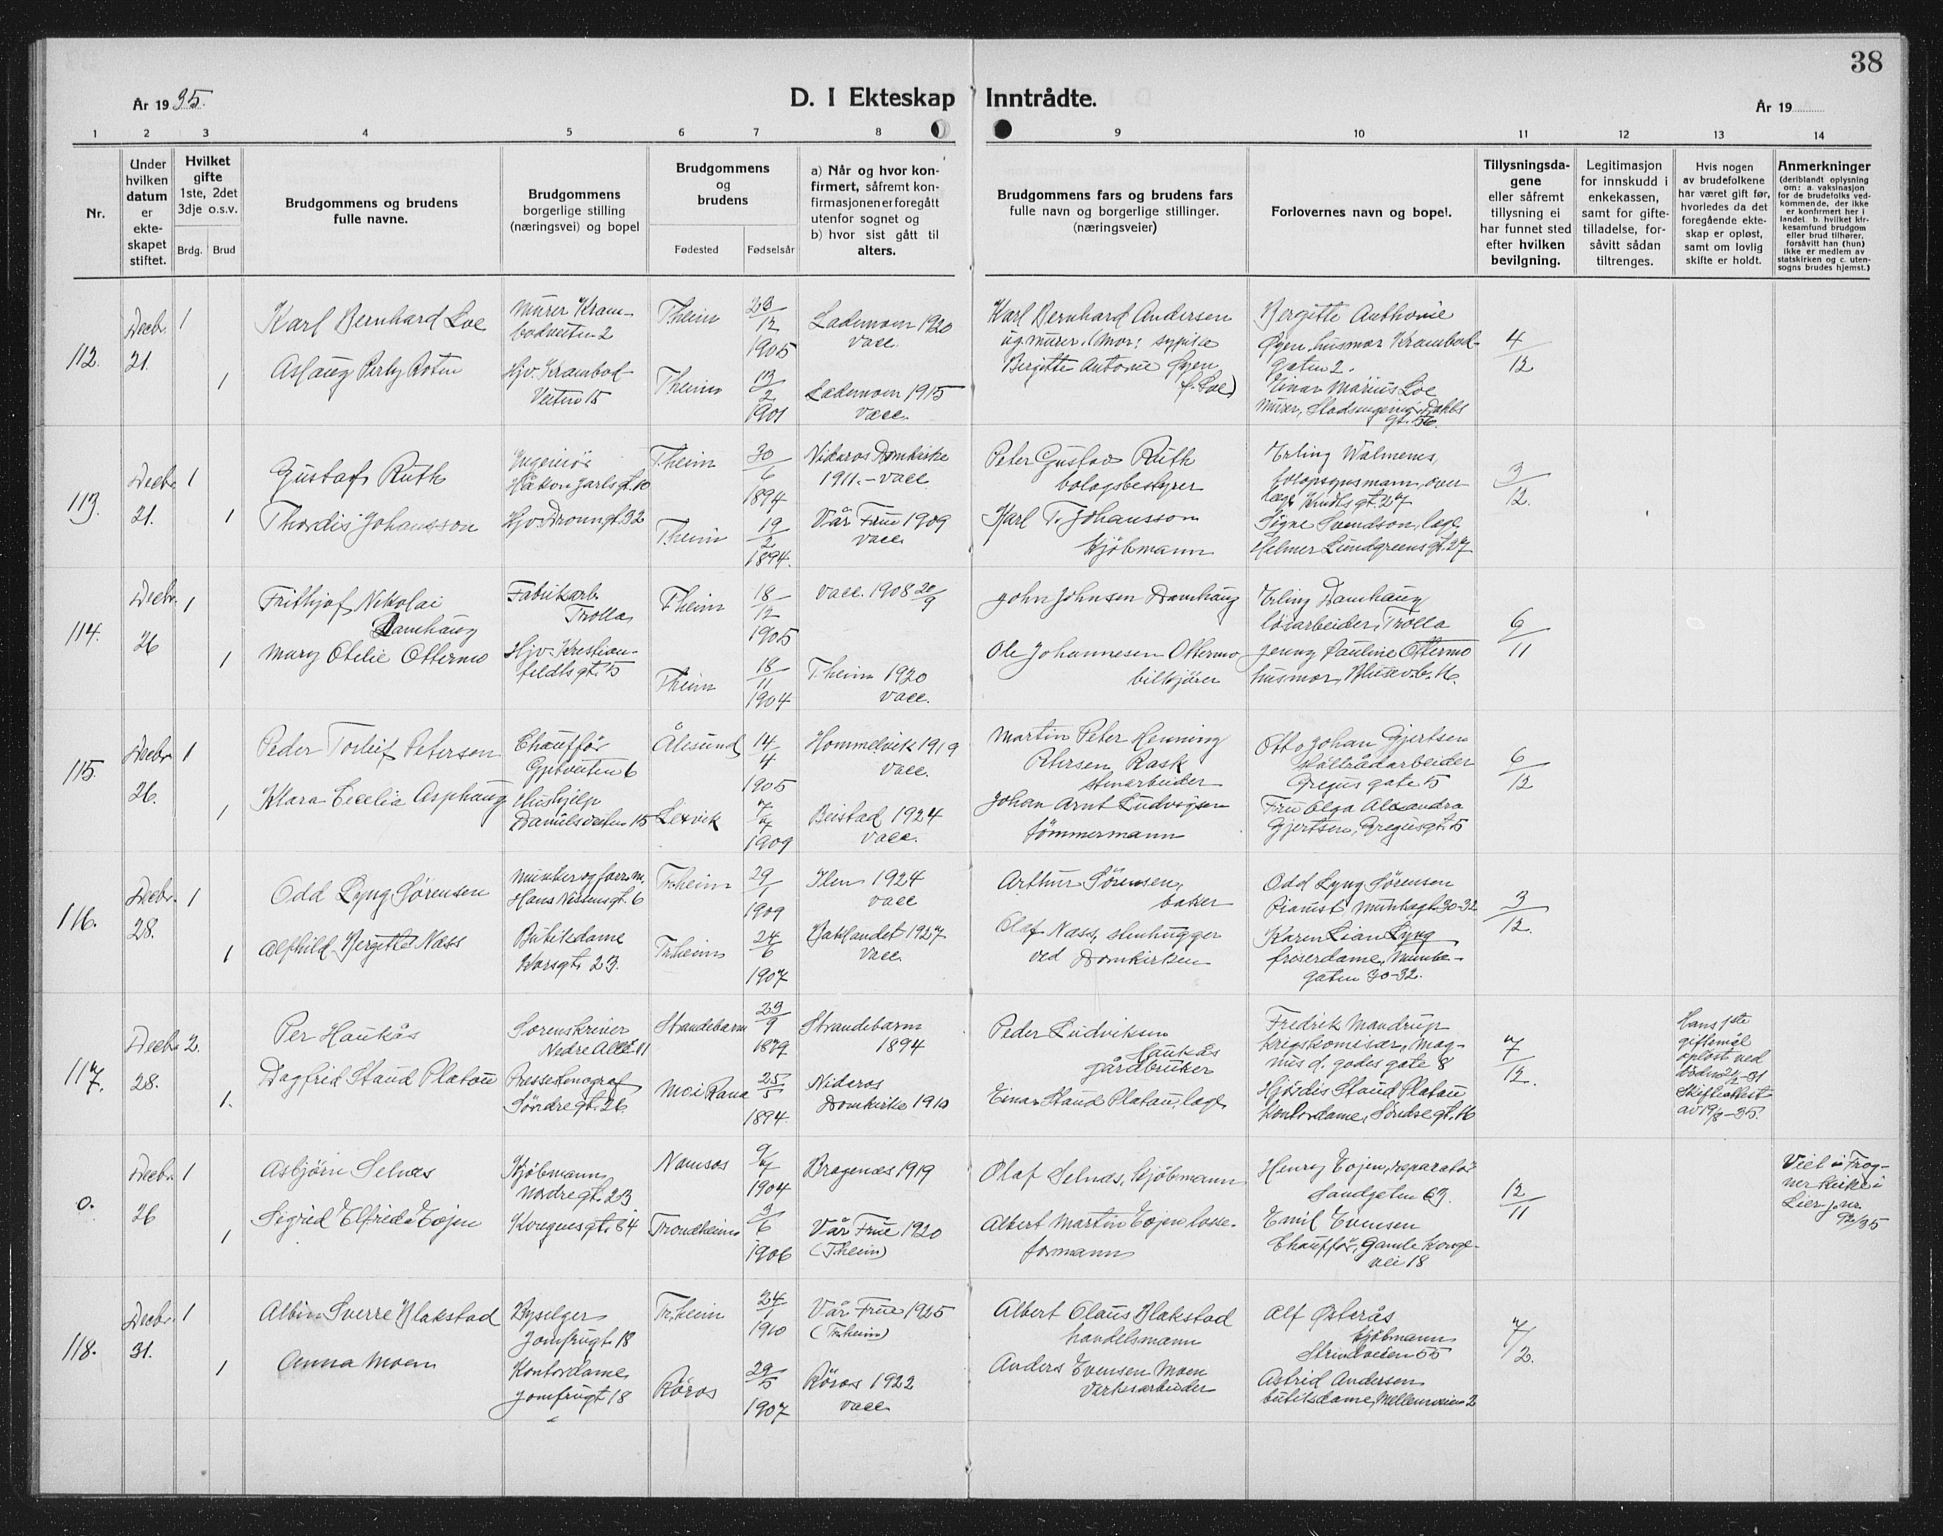 38
År 1935.
D. I Ekteskap Inntrådte.
År 19
1 2 3 4 5 6 7 8 9 10 11 12 13 14
Nr.
Under hvilken datum er ekteskapet stiftet.
Hvilket gifte 1ste, 2det 3dje o.s.v.
Brdg. Brud
Brudgommens og brudens fulle navne.
Brudgommens borgerlige stilling (næringsvei) og bopel
Brudgommens og brudens
Fødested Fødselsår
a) Når og hvor konfirmert, såfremt konfirmasjonen er foregått utenfor sognet og b) hvor sist gått til alters.
Brudgommens fars og brudens fars fulle navn og borgerlige stillinger. (næringsveier)
Forlovernes navn og bopel.
Tillysningsdagene eller såfremt tillysning ei har funnet sted efter hvilken bevilgning.
Legitimasjon for innskudd i enkekassen, samt for giftetilladelse, forsåvitt sådan tiltrenges.
Hvis nogen av brudefolkene har været gift før, hvorledes da det foregående ekteskap er opløst, samt om lovlig skifte er holdt.
Anmerkninger (deriblandt oplysning om: a. vaksinasjon for de brudefolks vedkommende, der ikke er konfirmert her i landet. b. hvilket kirkesamfund brudgom eller brud tilhører, forsåvitt han (hun) ikke er medlem av statskirken og c. utensogns brudes hjemst.)
112. Decbr. 21. 1
Karl Bernhard Loe
Murer Krambodveiten 2
T.heim 23/12 1905
Lademoen 1920 vacc.
Karl Bernhard Andersen
Bergitte Anthonie Øyen, husmor Krambodgaten 2.
4/12
1
Aslaug Perly Roten
Hjv. Krambod Veiten 15
T.heim 13/2 1901
Lademoen 1915 vacc.
Birgitte Antonie Øyen f. Loe)
Einar Marius Loe
murer, Stadsingeniør Dahls gt. 56.
113. Decbr. 21. 1
Gustaf Ruth
Ingeniør Håkon Jarls gt. 10
T.heim 30/6 1894
Nidaros Domkirke 1911. – vacc.
Peter Gustav Ruth
bolagsbestyrer
3/12.
1
Thordis Johansson
Hjv. Dronn.gt. 32
T.heim 19/2 1894.
Vår Frue 1909 vacc.
Karl T. Johansson
Kjøbmann
Signe Svendson, læge
Helmer Lundgreens gt. 27
114. Decbr. 26 1
Frithjof Nikolai Damhaug
Fabrikarb. Trolla
T.heim 18/12 1905
vacc. 1908 20/9
John Johnsen Damhaug
Erling Damhaug
løsarbeider, Trolla
6/11
1
Mary Otelie Ottermo
Hjv. Kristianfeldts gt. 5
T.heim 18/11 1904
T.heim 1920 vacc.
Ole Johannesen Ottermo
bilkjører
Jenny Pauline Ottermo
115. Decbr. 26. 1
Peder Torleif Petersen
Chauffør
Ålesund 14/4 1905
Hommelvik 1919 vacc.
Martin Peter Henning Petersen Rask
stenarbeider
Otto Johan Gjertsen
Ståltrådarbeider
Gregus gate 5
6/12
1
Klara Cecelia Asphaug
Hushjelp
Danielsveiten 15
Lexvik 7/7 1909
Beistad 1924 vacc.
Johan Arnt Ludvigsen
tømmermann
Fru Olga Alexandra Gjertsen, Gregusgt. 5
116. Decbr. 28. 1
Odd Lyng Sørensen
Hans Nissens gt. 6
Tr.heim 29/1 1909
Ilen 1924 vacc
Arthur Sørensen, baker
Odd Lyng Sørensen
Pianist, Munkegt. 30-32
3/12.
1
Alfhild Bergitte Næss
Butikdame
Korsgt. 23.
Tr.heim 24/6 1907
Bakklandet 1927 vacc.
Olaf Næss, stenhugger
ved Domkirken
Karen Lian Lyng
frisérdame, Munkegaten 30-32.
117. Decbr. 28. 2.
Per Haukås
Sorenskriver
Nedre Allé 11
Strandebarm 23/9 1879
Strandebarm 1894
Peder Ludviksen Haukås
gårdbruker
Fredrik Mandrup
krigskomisær, Magnus d. godes gate 8
7/12.
Hans 1ste giftemål opløst ved
Skifteattest av 19/8 – 35.
1.
Dagfrid Staud Platou
Pressestenograf
Søndregt. 26
Mo i Rana 25/5 1894.
Nidaros Domkirke 1910
Einar Staud Platou, læge
Hjørdis Staud Platou
Kontordame, Søndregt. 16
0. Decbr. 26 1
Asbjørn Selnæs
Kjøbmann
Nordregt. 23
Namsos 9/7 1904
Bragenæs 1919
Olaf Selnæs, Kjøbmann
Henry Eojen, reparatør
Sandgaten 63.
12/11
Viet i Frogner kirke i Lier j.nr. 92/35
1
Sigrid Elfrida Eojen
Kongensgt. 84
Trondheim 3/6 1906
Vår Frue 1920 (T.heim)
Albert Martin Eojen losseformann
Emil Evensen
Chauffør, Gamle Kongevei 18
118. Decbr. 31. 1
Albin Sverre Blakstad
Byselger
Jomfrugt. 18
Tr.heim 24/1 1910
Vår Frue 1925 (Tr.heim)
Albert Olaus Blakstad
handelsmann
Alf Østerås
kjøbmann
Strindveien 55
7/12.
1
Anna Moen
Kontordame
Jomfrugt. 18
Røros 29/5 1907
Røros 1922 vacc.
Anders Evensen Moen
Verksarbeider
Astrid Andersen
butikdame, Mellemveien 2